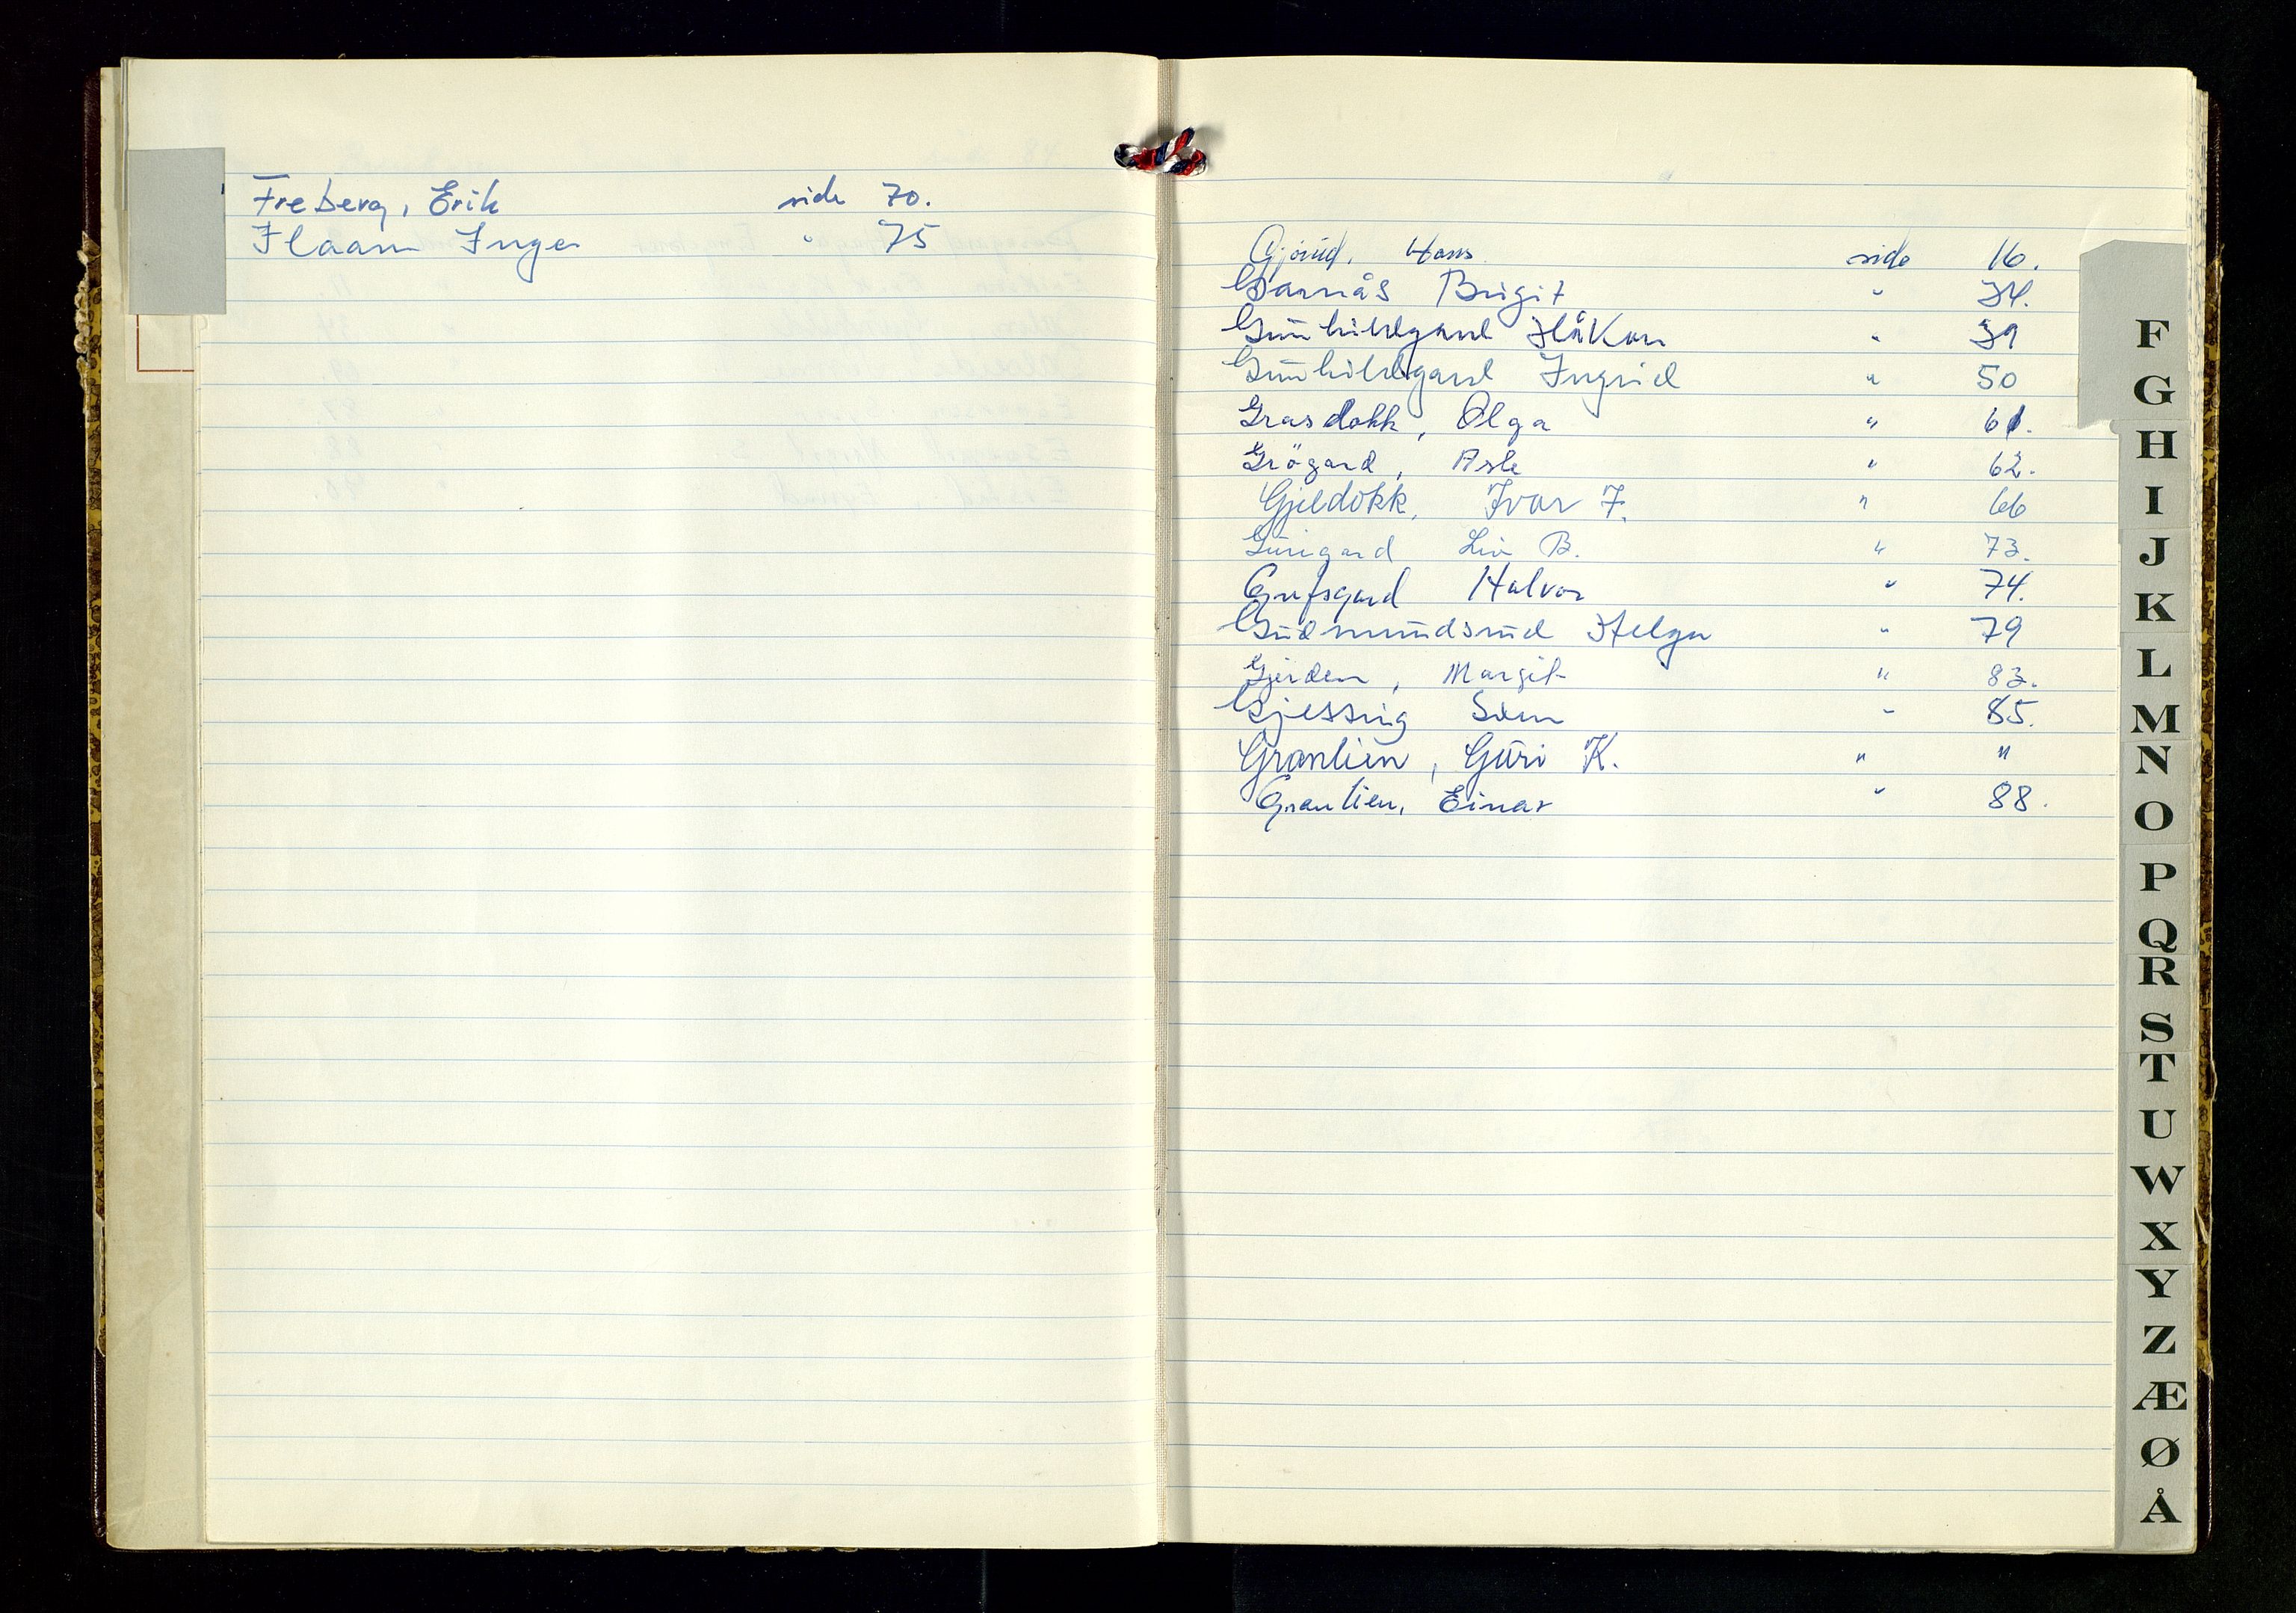 Freberg, Erik side 70.
Flaam Inger " 75
Gjörud, Hans side 16.
Garnås Birgit " 34.
Gunhildgard Håkon " 39
Gunhildgard Ingrid " 50
Grasdokk, Olga " 61.
Grögard, Asle " 62.
Gjeldokk, Ivar F. " 66
Gurigard Liv B. " 73.
Gufsgard Halvor " 74.
Gudmundsrud Helga " 79
Gjerden, Margit " 83.
Gjessing " 85.
Grønlien, Guri K. " "
Grønlien, Einar " 88.
F
G
H
I
J
K
L
M
N
O
P
Q
R
S
T
U
W
X
Y
Z
Æ
Ø
Å